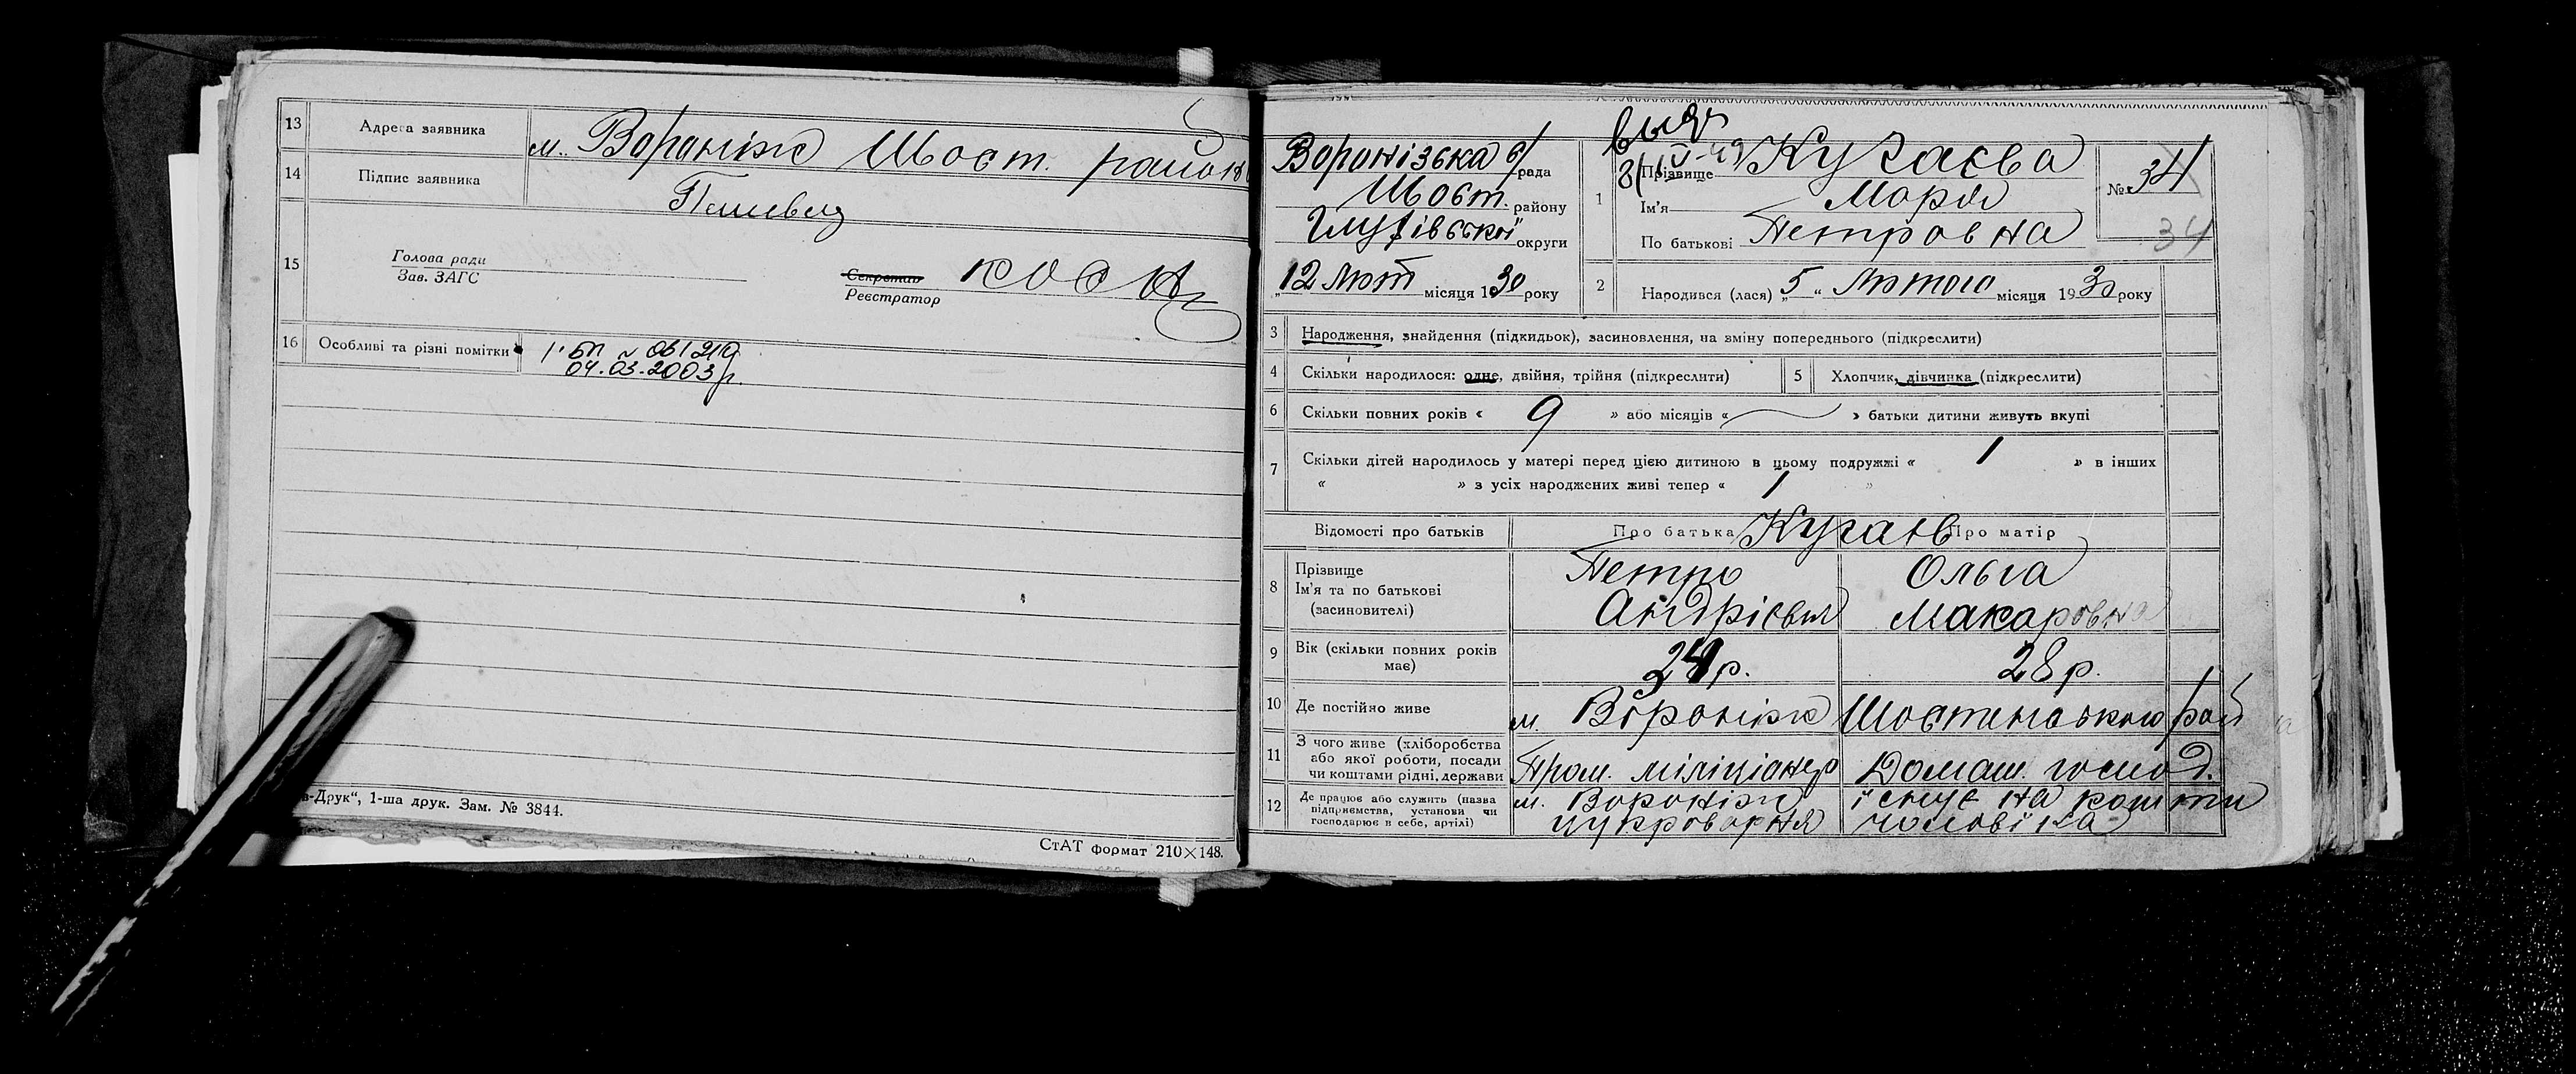 13 Адреса заявника м. Вороніж Шост. району
14 Підпис заявника
15 Голова ради
Зав. ЗАГС
Секретар
Реєстратор
16 Особливі та різні помітки 1. БП № 061219
04.03.2003 р.
-Друк“, 1-ша друк. Зам. № 3844.
СтАТ формат 210×148.
Воронізька с/рада
Шост. району
Глухівської округи
„12 Лют місяця 1930 року
1 Прізвище Кугаєва
Ім'я Марія
По батькові Петровна
№ 34
34
2 Народився (лася) „5“ Лютого місяця 1930 року
3 Народження, знайдення (підкидьок), засиновлення, на зміну попереднього (підкреслити)
4 Скільки народилося: одне, двійня, трійня (підкреслити)
5 Хлопчик, дівчинка (підкреслити)
6 Скільки повних років « 9 » або місяців « » батьки дитини живуть вкупі
7 Скільки дітей народилось у матері перед цією дитиною в цьому подружжі « 1 » в інших
« » з усіх народжених живі тепер « 1 »
Відомості про батьків Про батька Про матір
Кугаєв
8 Прізвище
Ім'я та по батькові
(засиновителі)
Петро
Андрієвич
Ольга
Макаровна
9 Вік (скільки повних років
має)
24 р. 28 р.
10 Де постійно живе м. Вороніж Шостенського рай
11 З чого живе (хліборобства
або якої роботи, посади
чи коштами рідні, держави
Пром. міліціонер Домаш. господ.
12 Де працює або служить (назва
підприємства, установи чи
господарює в себе, артілі)
м. Вороніж
цукроварня
існує на кошти
чоловіка